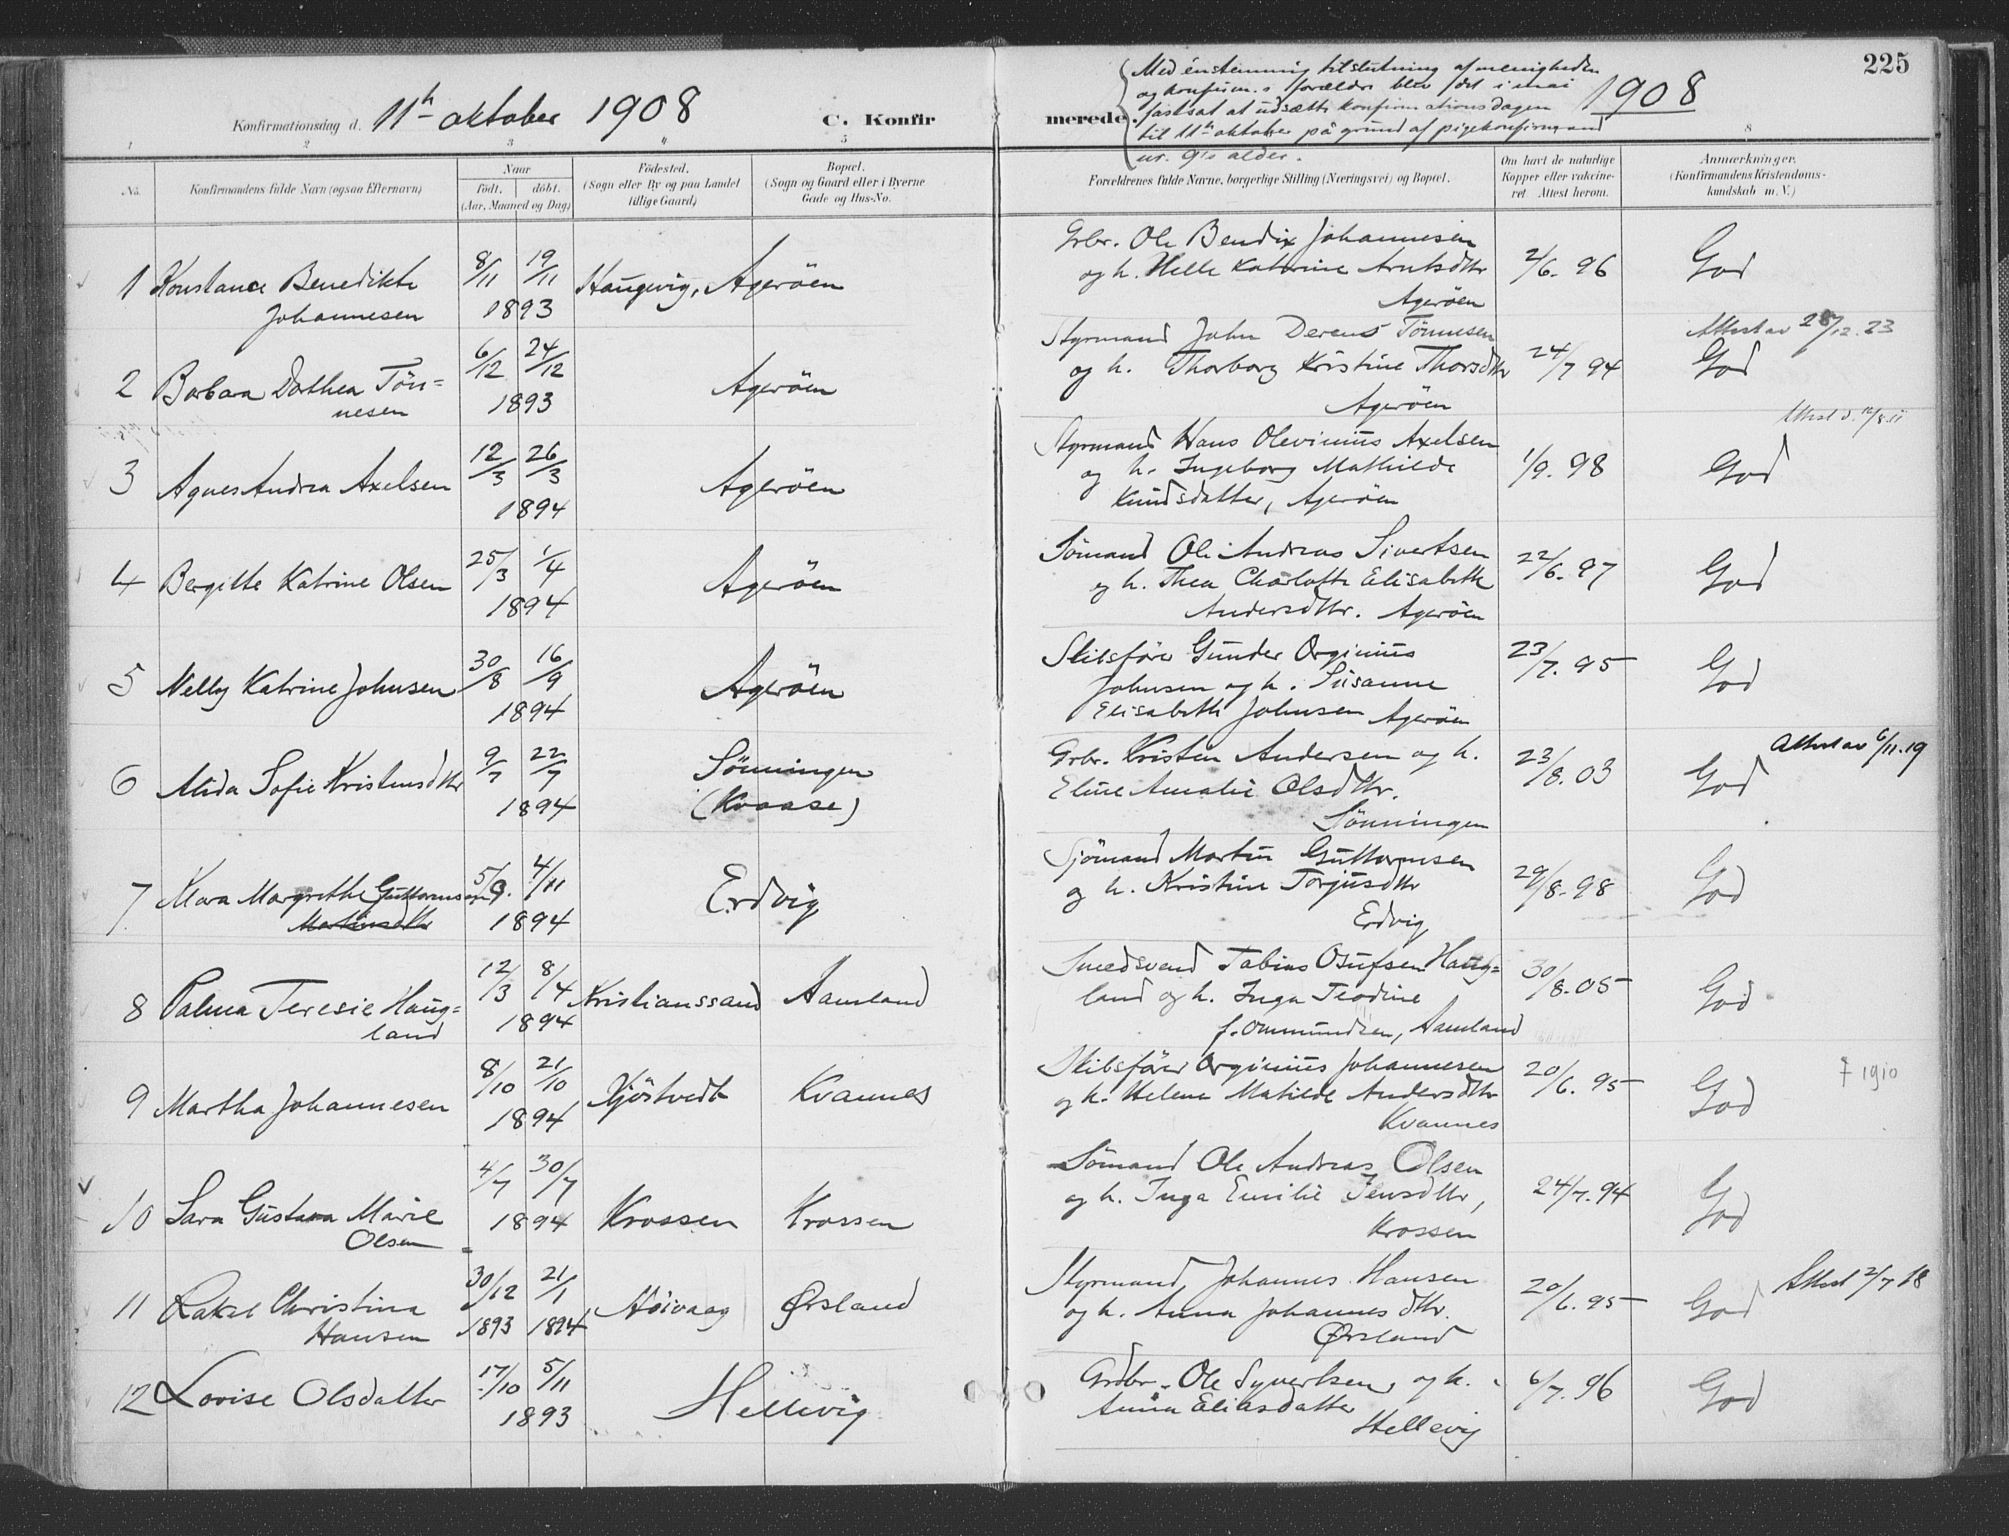 225
Med énstemmig tilslutning af menigheden
og konfirm.s forældre blev det i mai
fastsat at udsætte konfirmationsdagen
til 11te oktober på grund af pigekonfirmand
nr. 9's alder.
1908
Konfirmationsdag d. 11te oktober 1908
C. Konfir merede.
1 2 3 4 5 8
No.
Konfirmandens fulde Navn (ogsaa Efternavn)
Naar
født. døbt.
(Aar, Maaned og Dag)
Fødested.
(Sogn eller By og paa Landet
tillige Gaard)
Bopæl.
(Sogn og Gaard eller i Byerne
Gade og Hus-No.
Forældrenes fulde Navne, borgerlige Stilling (Næringsvei) og Bopæl.
Om havt de naturlige
Kopper eller vakcine-
ret Attest herom.
Anmærkninger.
(Konfirmandens Kristendoms-
kundskab m. V.)
1 Konstance Benedikte
Johannesen
8/11 19/11
1893
Haugevig, Agerøen
Grbr. Ole Bendix Johannesen
og h. Helle Katrine Arntsdtr
Agerøen
2/6. 96
God
2 Barbara Dorthea Tön-
nesen
6/12 24/12
1893
Agerøen
Styrmand John Derens Tönnesen
og h. Thorborg Kristine Thorsdtr
Agerøen
24/7 94
Attest av 28/12.23
God
3 Agnes Andrea Axelsen
12/3 26/3
1894
Agerøen
Styrmand Hans Olevinius Axelsen
og h. Ingeborg Mathilde
Knudsdatter, Agerøen
1/9. 98
Attest d. 12/8.11
God
4 Bergitte Katrine Olsen
25/3 1/4
1894
Agerøen
Sömand Ole Andreas Sivertsen
og h. Thea Charlotte Elisabeth
Andersdtr. Agerøen
22/6. 97
God
5 Nelly Katrine Johnsen
30/8 16/9
1894
Agerøen
Skibsförer Gunder Orginius
Johnsen og h. Susanne
Elisabeth Johnsen Agerøen
23/7. 95
God
6 Alida Sofie Kristensdtr
9/7 22/7
1894
Sönningen
(Kvaase)
Grbr. Kristen Andersen og h.
Eline Amalie Olsdtr.
Sönningen
23/8. 03
Attest av 6/11.19
God
7 Klara Margrethe Guttormsen
Martinsdtr
5/9. 4/11
1894
Erdvig
Sjömand Martin Guttormsen
og h. Kristine Torjusdtr
Erdvig
29/8. 98
God
8 Palma Teresie Haug-
land
12/3 8/4
1894
Kristianssand Aamland
Smedsvend Tobias Osufsen Haug-
land og h. Inga Teodine
f. Ommundsen, Aamland
30/8. 05
God
9 Martha Johannesen
8/10 21/10
1894
Kjöstvedt Kvannes
Skibsförer Orginius Johannesen
og h. Helene Matilde Andersdtr
Kvannes
20/6. 95
God
† 1910
10 Sara Gustava Marie
Olsen
4/7 30/7
1894
Krossen Krossen
Sömand Ole Andreas Olsen
og h. Inga Emilie Jensdtr,
Krossen
24/7. 94
God
11 Rakel Christina
Hansen
30/12 21/1
1893 1894
Höivaag Ørsland
Styrmand Johannes Hansen
og h. Anna Johannesdtr.
Ørsland
20/6. 95
God
Attest 2/7 18
12 Lovise Olsdatter
17/10 5/11
1893
Hellevig
Grdbr. Ole Syvertsen, og h.
Anna Eliasdatter
Hellevig
6/7. 96
God